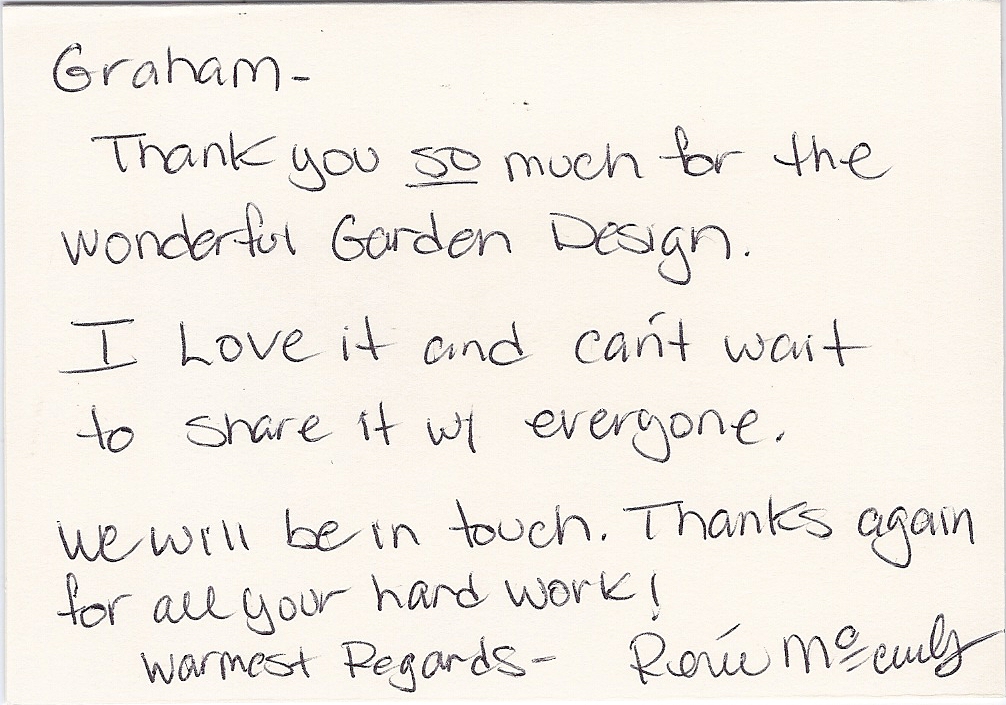 Graham-
Thank you so much for the
wonderful Garden Design.
I Love it and can't wait
to share it w/ everyone.
We will be in touch. Thanks again
for all your hard work!
Warmest Regards-